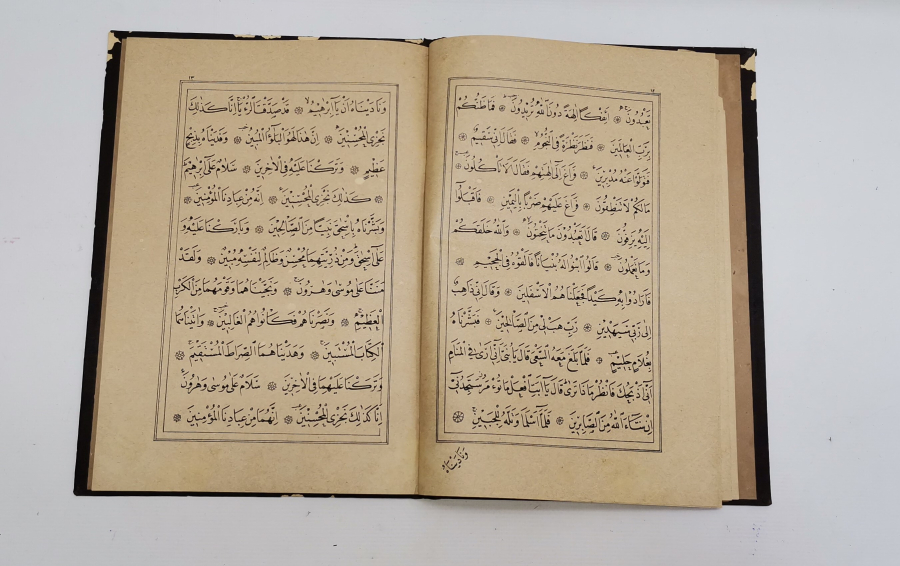 ١٢
تَعْبُدُونَ ۞ اَئِفْكًا اٰلِهَةً دُونَ اللّٰهِ تُرِيدُونَ ۞ فَمَا ظَنُّكُمْ
بِرَبِّ الْعَالَمِينَ ۞ فَنَظَرَ نَظْرَةً فِى النُّجُومِ ۞ فَقَالَ اِنِّى سَقِيمٌ ۞
فَتَوَلَّوْا عَنْهُ مُدْبِرِينَ ۞ فَرَاغَ اِلٰى اٰلِهَتِهِمْ فَقَالَ اَلَا تَأْكُلُونَ ۞
مَالَكُمْ لَا تَنْطِقُونَ ۞ فَرَاغَ عَلَيْهِمْ ضَرْبًا بِالْيَمِينِ ۞ فَاَقْبَلُوا
اِلَيْهِ يَزِفُّونَ ۞ قَالَ اَتَعْبُدُونَ مَا تَنْحِتُونَ ۞ وَاللّٰهُ خَلَقَكُمْ
وَمَا تَعْمَلُونَ ۞ قَالُوا ابْنُوا لَهُ بُنْيَانًا فَاَلْقُوهُ فِى الْجَحِيمِ ۞
فَاَرَادُوا بِهِ كَيْدًا فَجَعَلْنَاهُمُ الْاَسْفَلِينَ ۞ وَقَالَ اِنِّى ذَاهِبٌ
اِلٰى رَبِّى سَيَهْدِينِ ۞ رَبِّ هَبْ لِى مِنَ الصَّالِحِينَ ۞ فَبَشَّرْنَاهُ
بِغُلَامٍ حَلِيمٍ ۞ فَلَمَّا بَلَغَ مَعَهُ السَّعْىَ قَالَ يَا بُنَىَّ اِنِّى اَرٰى فِى الْمَنَامِ
اَنِّى اَذْبَحُكَ فَانْظُرْ مَاذَا تَرٰى قَالَ يَا اَبَتِ افْعَلْ مَا تُؤْمَرُ سَتَجِدُنِى
اِنْ شَاءَ اللّٰهُ مِنَ الصَّابِرِينَ ۞ فَلَمَّا اَسْلَمَا وَتَلَّهُ لِلْجَبِينِ ۞
وَنَادَيْنَاهُ
١٣
وَنَادَيْنَاهُ اَنْ يَا اِبْرٰهِيمُ ۞ قَدْ صَدَّقْتَ الرُّءْيَا اِنَّا كَذٰلِكَ
نَجْزِى الْمُحْسِنِينَ ۞ اِنَّ هٰذَا لَهُوَ الْبَلٰؤُا الْمُبِينُ ۞ وَفَدَيْنَاهُ بِذِبْحٍ
عَظِيمٍ ۞ وَتَرَكْنَا عَلَيْهِ فِى الْاٰخِرِينَ ۞ سَلَامٌ عَلٰى اِبْرٰهِيمَ
۞ كَذٰلِكَ نَجْزِى الْمُحْسِنِينَ ۞ اِنَّهُ مِنْ عِبَادِنَا الْمُؤْمِنِينَ ۞
وَبَشَّرْنَاهُ بِاِسْحٰقَ نَبِيًّا مِنَ الصَّالِحِينَ ۞ وَبَارَكْنَا عَلَيْهِ وَ
عَلٰى اِسْحٰقَ وَمِنْ ذُرِّيَّتِهِمَا مُحْسِنٌ وَظَالِمٌ لِنَفْسِهِ مُبِينٌ ۞ وَلَقَدْ
مَنَنَّا عَلٰى مُوسٰى وَهٰرُونَ ۞ وَنَجَّيْنَاهُمَا وَقَوْمَهُمَا مِنَ الْكَرْبِ
الْعَظِيمِ ۞ وَنَصَرْنَاهُمْ فَكَانُوا هُمُ الْغَالِبِينَ ۞ وَاٰتَيْنَاهُمَا
الْكِتَابَ الْمُسْتَبِينَ ۞ وَهَدَيْنَاهُمَا الصِّرَاطَ الْمُسْتَقِيمَ ۞
وَتَرَكْنَا عَلَيْهِمَا فِى الْاٰخِرِينَ ۞ سَلَامٌ عَلٰى مُوسٰى وَهٰرُونَ
اِنَّا كَذٰلِكَ نَجْزِى الْمُحْسِنِينَ ۞ اِنَّهُمَا مِنْ عِبَادِنَا الْمُؤْمِنِينَ ۞